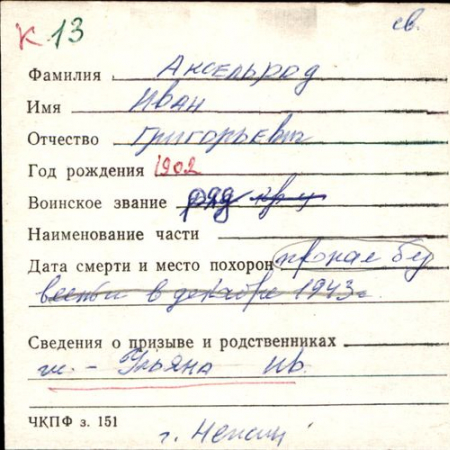 к 13 св.
Фамилия Аксельрод
Имя Иван
Отчество Григорьевич
Год рождения 1902
Воинское звание ряд
Наименование части
Дата смерти и место похорон пропал без
вести в декабре 1943 г.
Сведения о призыве и родственниках
ж. - Ульяна Ив.
ЧКПФ з. 151
г.